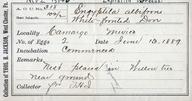 A.O.U. No. 318 Engyptila albifrons
White-fronted Dove
Locality Camargo Mexico
No. of Eggs 2 Date June 13, 1889
Incubation Commenced
Nest placed in Willow tree
near ground
Collector
COLLECTION OF THOS. H. JACKSON, WEST CHESTER, PA.